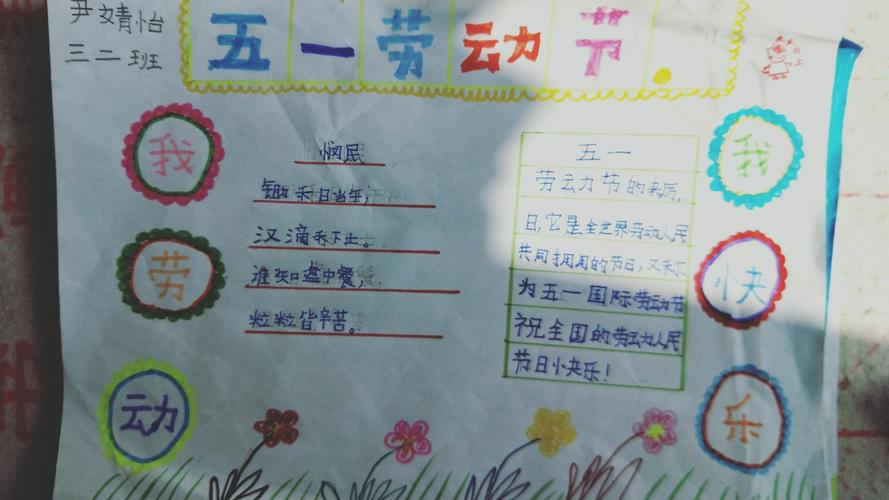 尹婧怡
三二班
五一劳动节
我
劳
动
悯民
锄禾日当午，
汉滴禾下土。
谁知盘中餐，
粒粒皆辛苦。
五一
劳动节的来历，
日，它是全世界劳动人民
共同拥用的节日，又称
为五一国际劳动节
祝全国的劳动人民
节日快乐！
我
快
乐